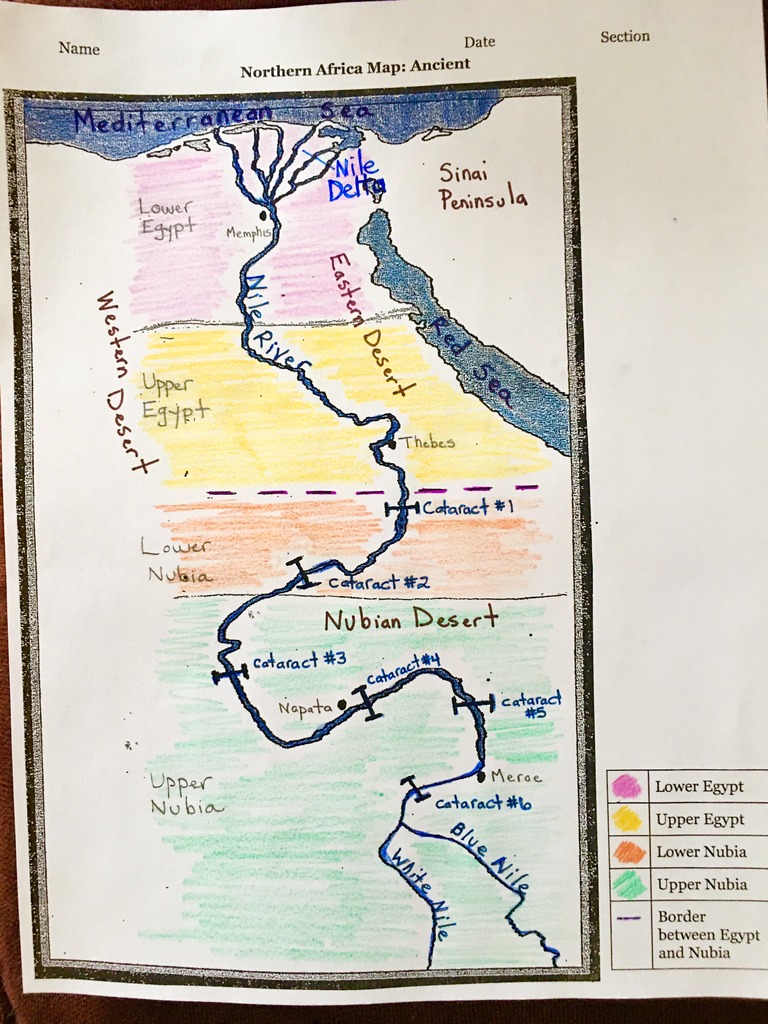 Name
Date
Section
Northern Africa Map: Ancient
Mediterranean Sea
Nile
Delta
Sinai
Peninsula
Lower
Egypt
Memphis
Nile River
Eastern Desert
Western Desert
Red Sea
Upper
Egypt
Thebes
Cataract #1
Lower
Nubia
Cataract #2
Nubian Desert
Cataract #3
Cataract #4
Napata
Cataract
#5
Meroe
Upper
Nubia
Cataract #6
Blue Nile
White Nile
Lower Egypt
Upper Egypt
Lower Nubia
Upper Nubia
Border
between Egypt
and Nubia